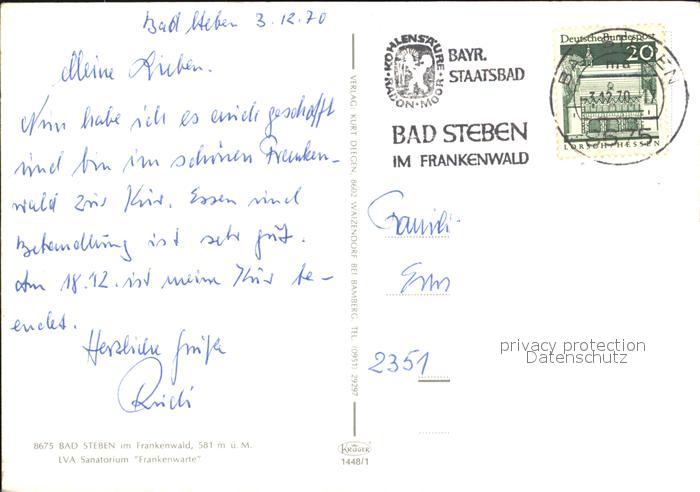 Bad Steben 3.12.70
Meine Lieben.
Nun habe ich es auch geschafft
und bin im schönen Franken-
wald zur Kur. Essen und
Behandlung ist sehr gut.
Am 18.12. ist meine Kur be-
endet.
Herzliche Grüße
Rudi
8675 BAD STEBEN im Frankenwald, 581 m ü. M.
LVA Sanatorium "Frankenwarte"
VERLAG: KURT DIEGEN, 8602 WAIZENDORF BEI BAMBERG, TEL. (0951) 29297
KRÜGER
1448/1
KOHLENSÄURE
RADON · MOOR
BAYR.
STAATSBAD
BAD STEBEN
IM FRANKENWALD
Deutsche Bundespost
20
LORSCH/HESSEN
BAD STEBEN
-3.12.70
8675
Famili
2351
privacy protection
Datenschutz